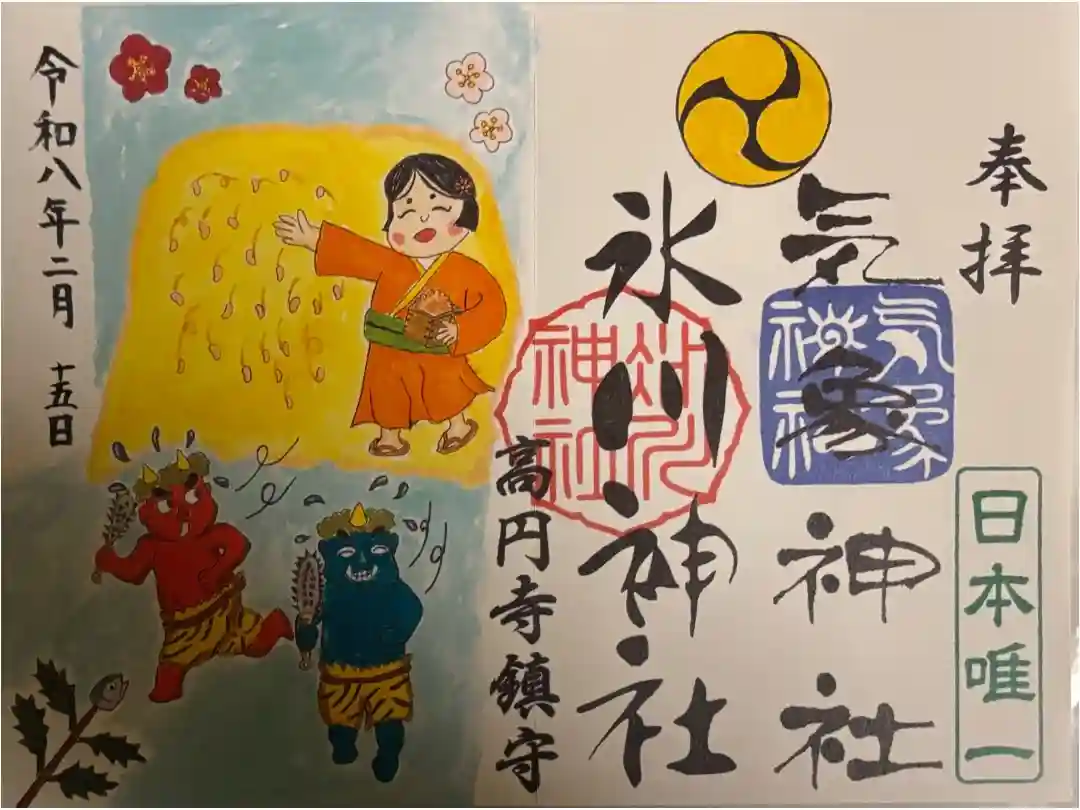 奉拝
日本唯一
氣象神社
気象神社
氷川神社
氷川神社
高円寺鎮守
令和八年二月 十五日